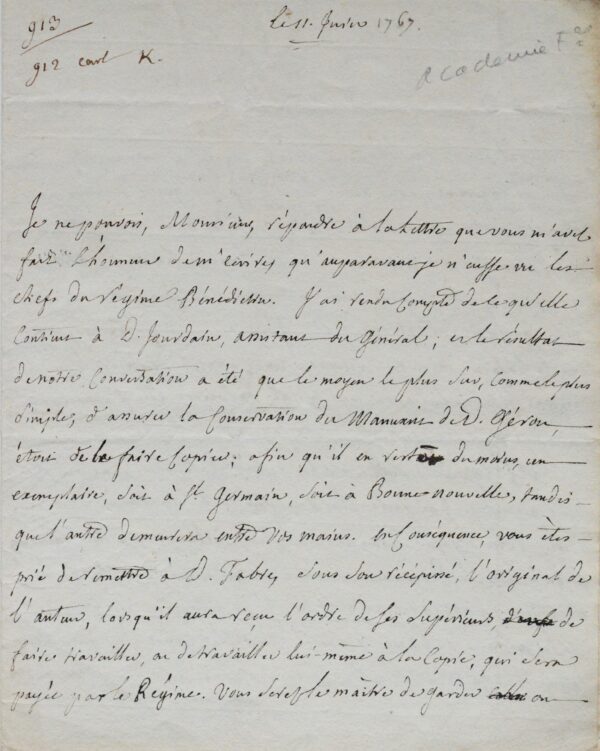 913
912 cart K.
le 11. Juin 1767.
Academie Fse
Je ne pouvois, Monsieur, répondre à la Lettre que vous m'avés
fait l'honneur de m'écrire, qu'auparavant je n'eusse vu les
chefs du régime Bénédictin. J'ai rendu Compte de ce qu'elle
Contient à D. Jourdain, assistant du Général; et le résultat
de notre Conversation a été que le moyen le plus sur, comme le plus
simple, d'assurer la Conservation du Manuscrit de D. Gérou,
étoit de le faire Copier; afin qu'il en reste du moins un
exemplaire, soit à St. Germain, soit à Bonne-nouvelle, tandis
que l'autre demeurera entre vos mains. en Conséquence, vous êtes
prié de remettre à D. Fabre, sous son récépissé, l'original de
l'auteur, lorsqu'il aura recu l'ordre de ses supérieurs, de
faire travailler, ou de travailler lui-même à la Copie, qui sera
payée par le Régime. Vous serés le maître de garder ou